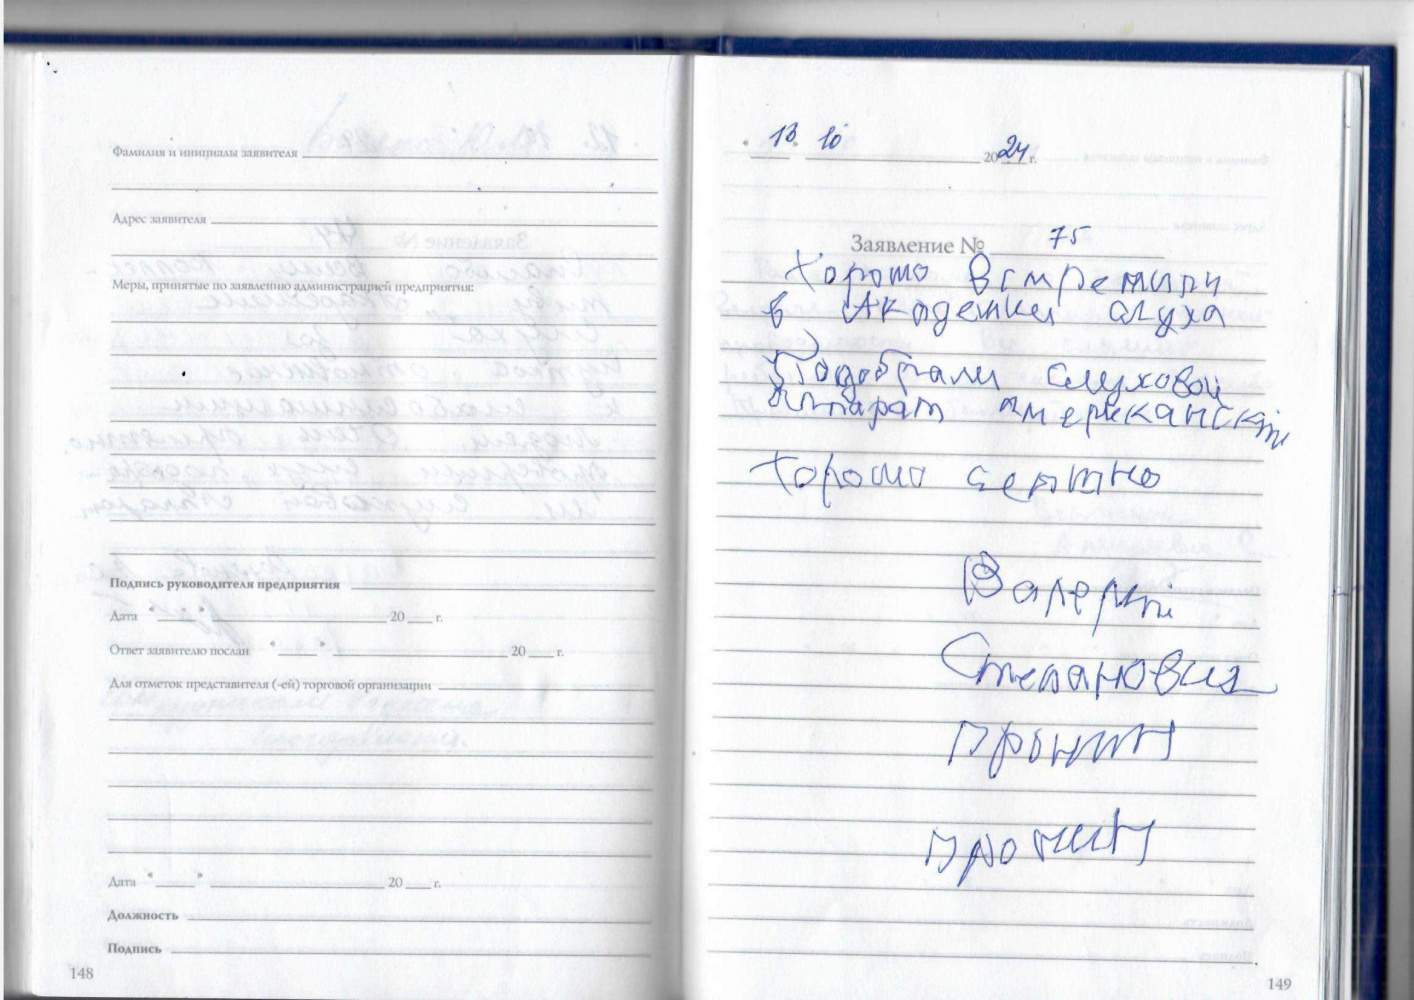 Фамилия и инициалы заявителя
Адрес заявителя
Меры, принятые по заявлению администрацией предприятия:
Подпись руководителя предприятия
Дата " " 20 г.
Ответ заявителю послан " " 20 г.
Для отметок представителя (-ей) торговой организации
Дата " " 20 г.
Должность
Подпись
148
13 10 2024 г.
Заявление № 75
Хорошо встретили
в Академии слуха
Подобрали слуховой
аппарат американский
Хорошо
Валерий
Степанович
Пронин
Пронин
149